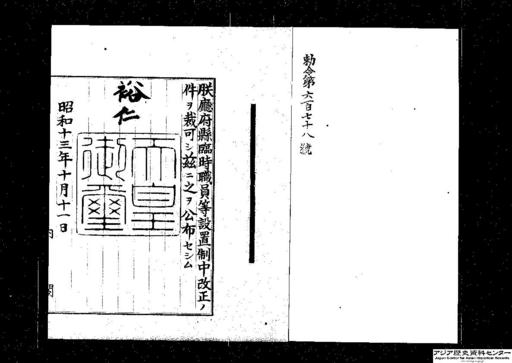 勅令第六百七十八號
朕廳府縣臨時職員等設置制中改正ノ
件ヲ裁可シ茲ニ之ヲ公布セシム
裕仁
天皇御璽
昭和十三年十月十一日
内閣
アジア歴史資料センター
Japan Center for Asian Historical Records